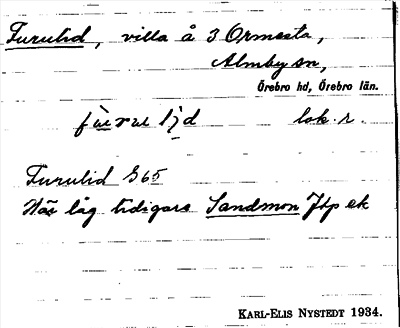 Furulid, villa å 3 Ormesta,
Almby sn,
Örebro hd, Örebro län.
lok. r.
Furulid G65
Här låg tidigare Sandmon Jtp ek
KARL-ELIS NYSTEDT 1934.